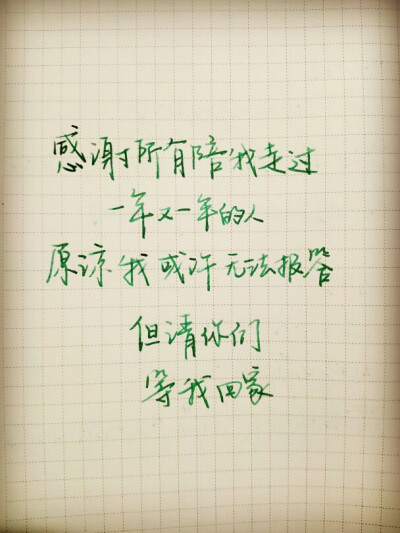 感谢所有陪我走过
一年又一年的人
原谅我或许无法报答
但请你们
等我回家